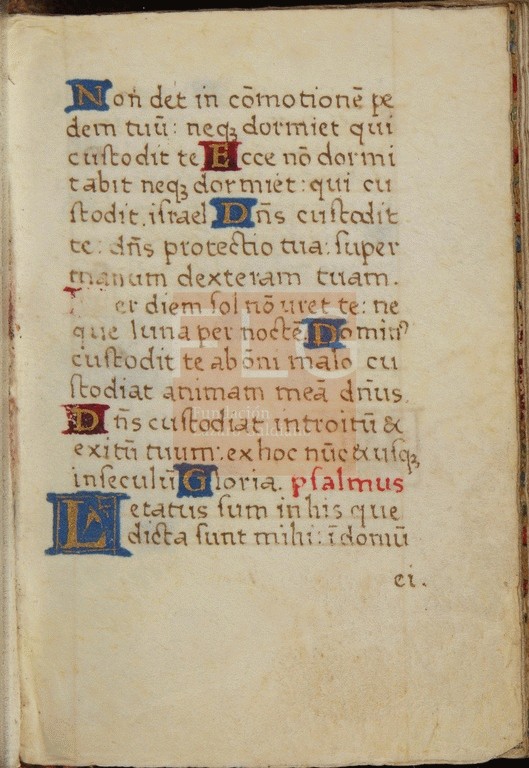 Non det in cōmotionē pe
dem tuū: neqꝫ dormiet qui
custodit te Ecce nō dormi
tabit neqꝫ dormiet: qui cu
stodit.israel Dn̄s custodit
te: dn̄s protectio tua: super
manum dexteram tuam.
er diem sol nō uret te: ne
que luna per noctē. Dominꝰ
custodit te ab ōni malo cu
stodiat animam meā dn̄us.
Dn̄s custodiat introitū &
exitū tuum: ex hoc nūc & usqꝫ
in seculū Gloria. psalmus
Letatus sum in his que
dicta sunt mihi: ī domū
ei.
FLG
Fundación